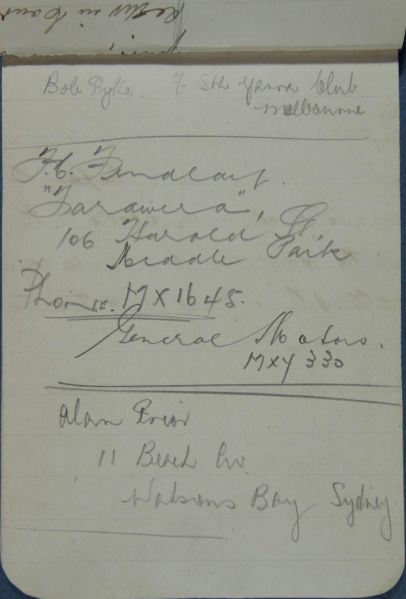 Bob Pyke. c/- Sth Yarra Club.
Melbourne
"Tarawera",
106 Harold St
Middle Park
Phone. MX1645.
General Motors.
MXY 330
Alan Prior
11 Beach
Watsons Bay Sydney